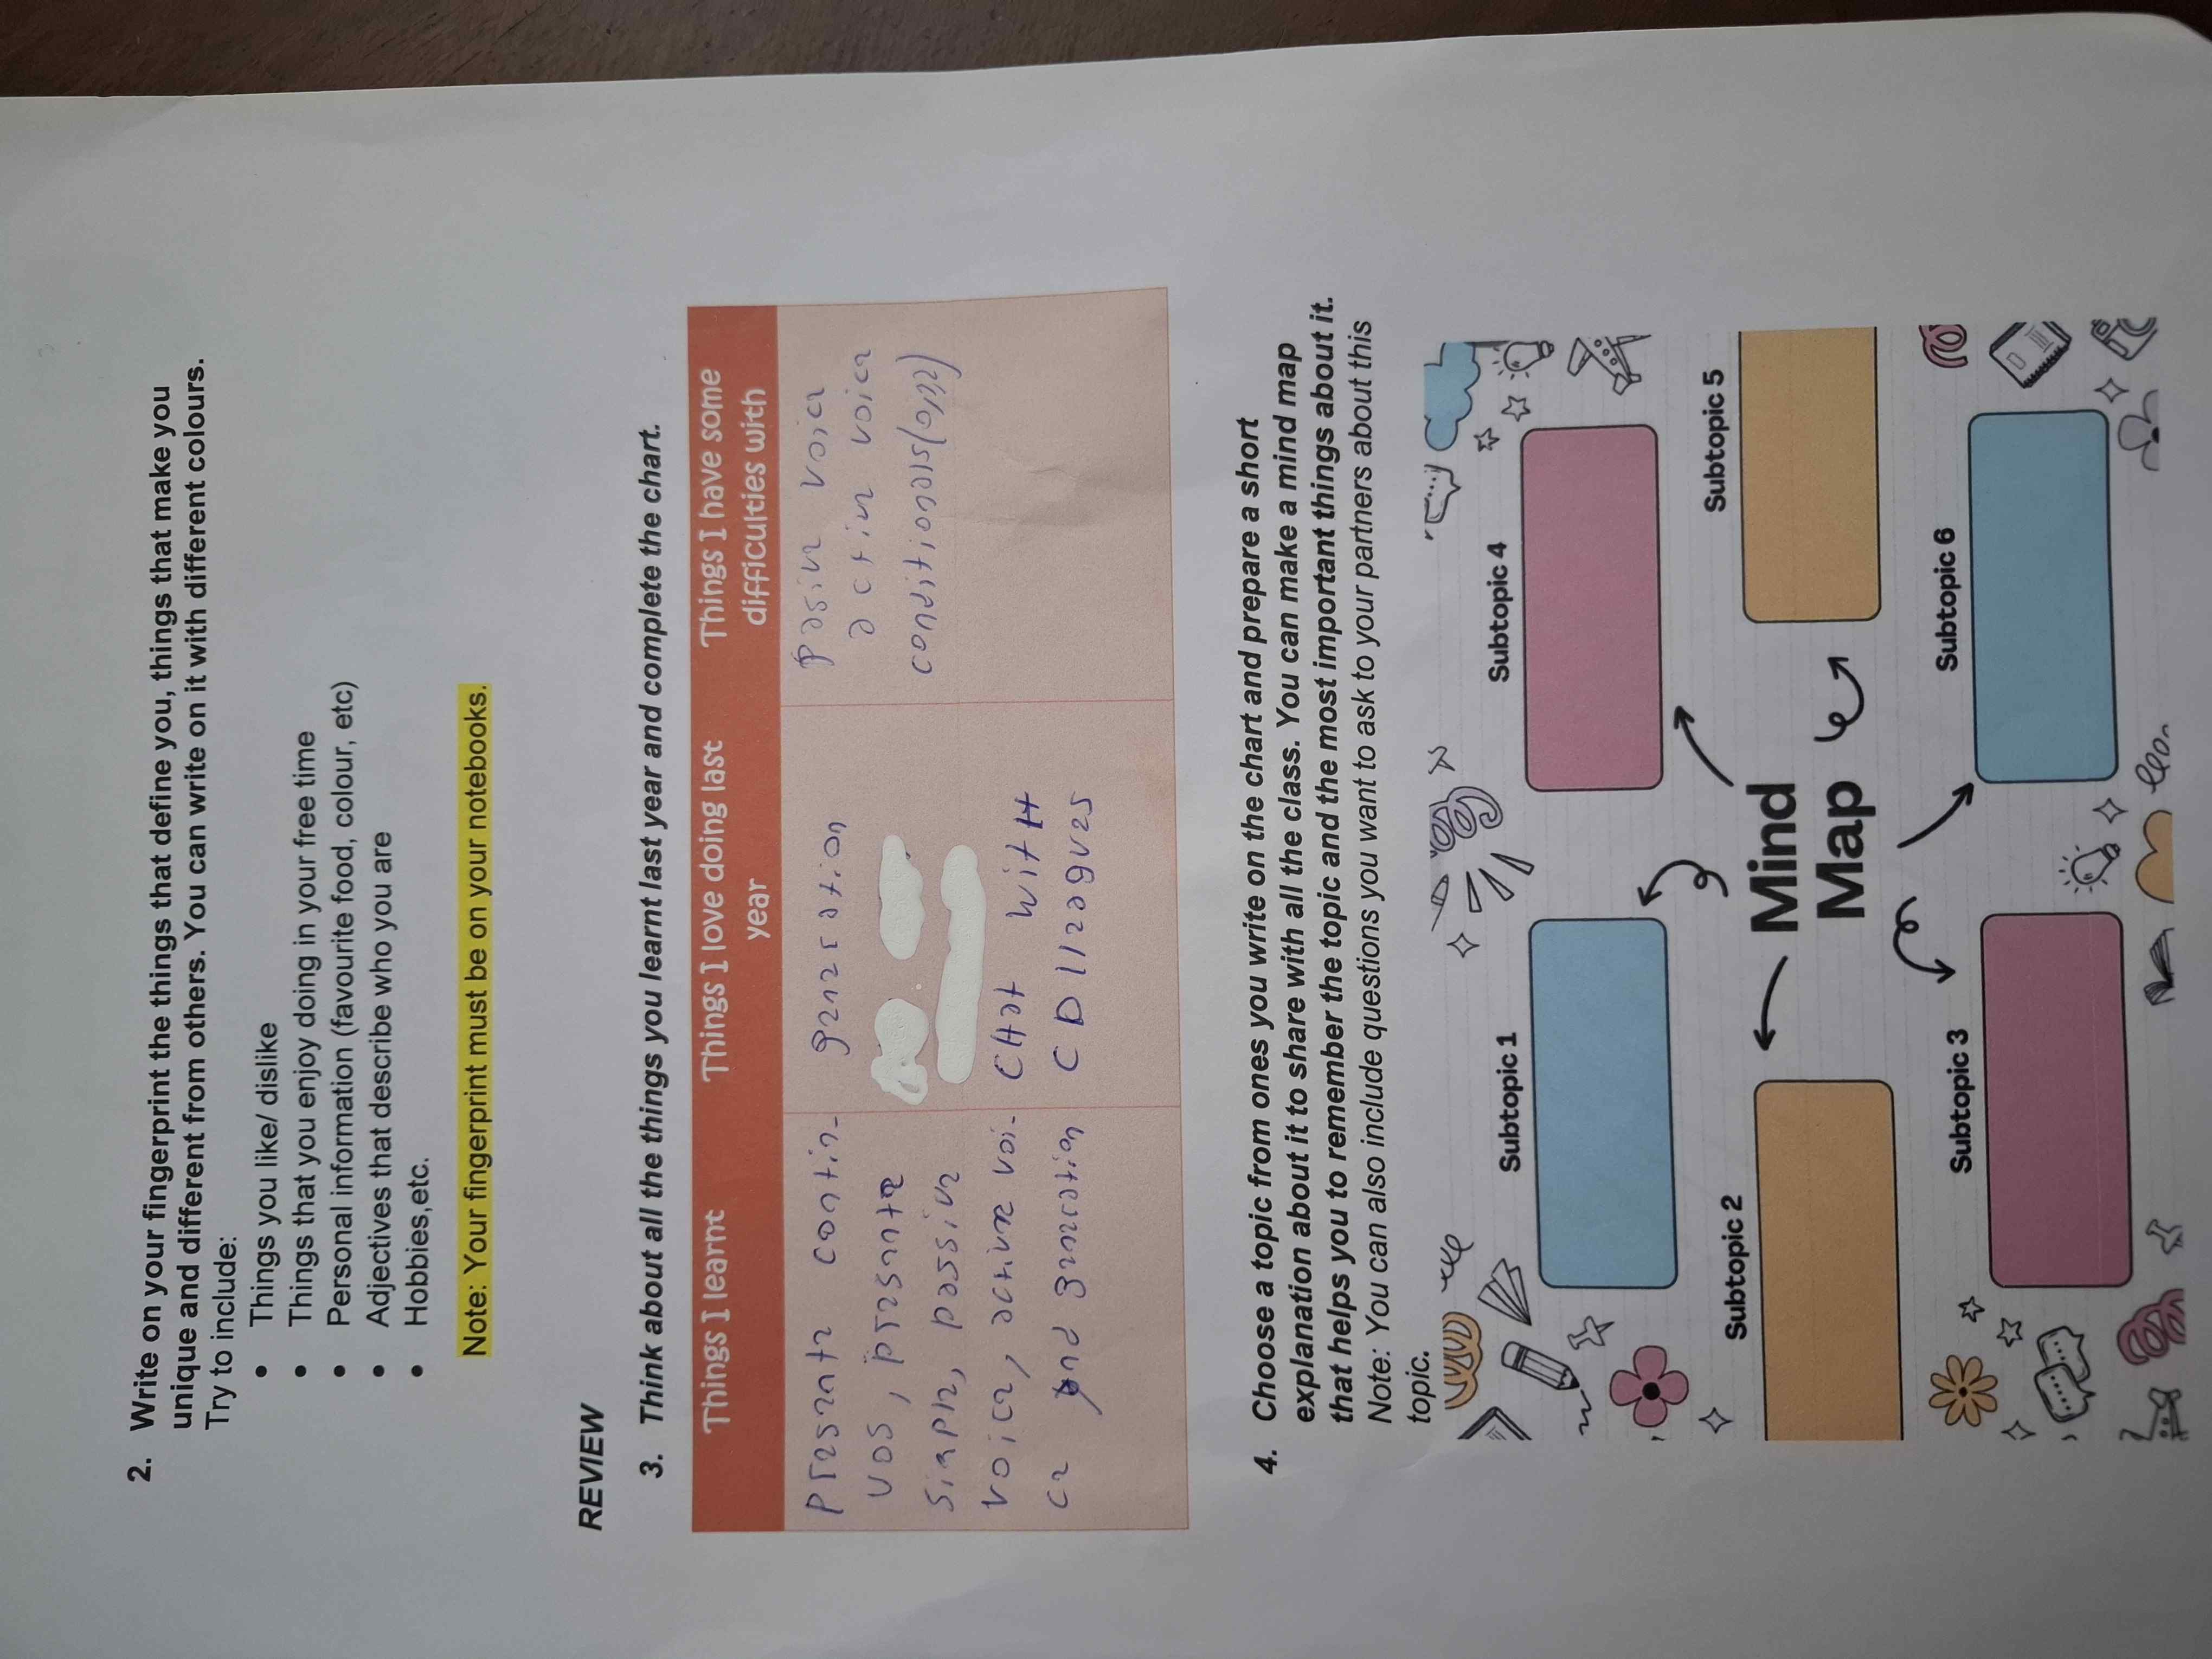 2. Write on your fingerprint the things that define you, things that make you
unique and different from others. You can write on it with different colours.
Try to include:
• Things you like/ dislike
• Things that you enjoy doing in your free time
• Personal information (favourite food, colour, etc)
• Adjectives that describe who you are
• Hobbies,etc.
Note: Your fingerprint must be on your notebooks.
REVIEW
3. Think about all the things you learnt last year and complete the chart.
Things I learnt
presente contin-
uos, presente
simple, passive
voice, active voi-
ce and
Things I love doing last
year
generation
CHat witH
COlleagues
Things I have some
difficulties with
pasiv voice
activ voice
conditionals
4. Choose a topic from ones you write on the chart and prepare a short
explanation about it to share with all the class. You can make a mind map
that helps you to remember the topic and the most important things about it.
Note: You can also include questions you want to ask to your partners about this
topic.
Subtopic 1
Subtopic 4
Subtopic 2
Mind
Map
Subtopic 5
Subtopic 3
Subtopic 6